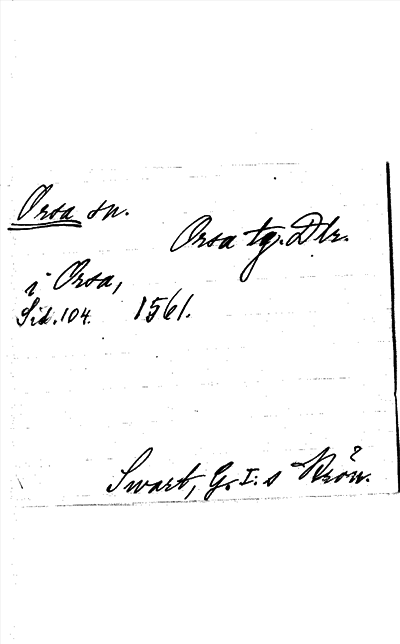 Orsa sn.
Orsa tg. Dlr.
i Orsa,
Sid. 104. 1561.
Swart, G. I:s Krön.